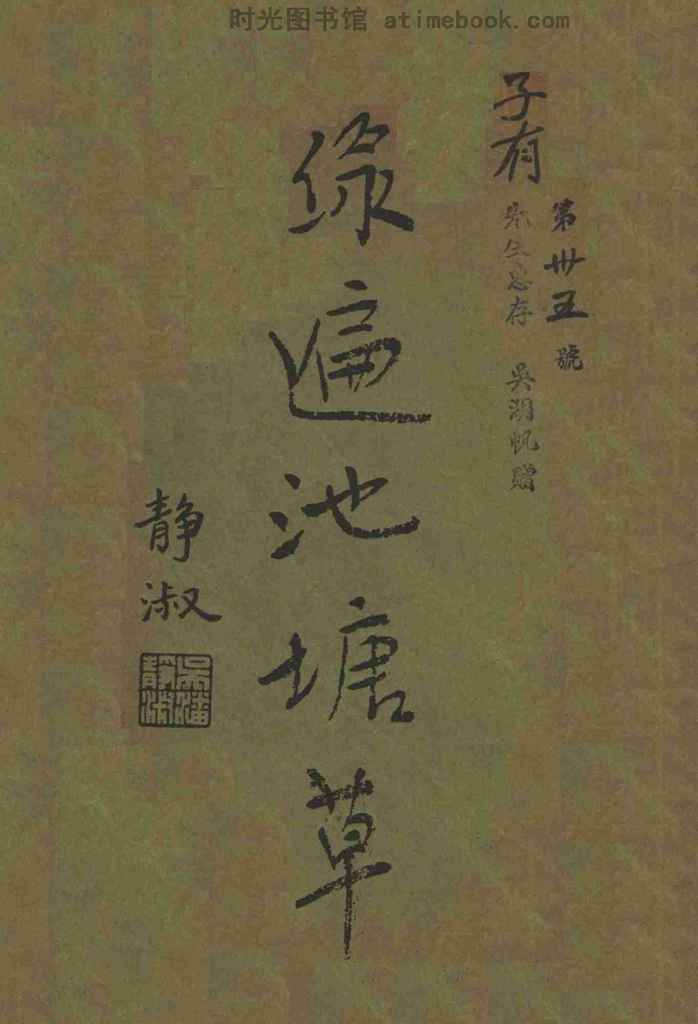 时光图书馆 atimebook.com
子有
先生惠存 吳湖帆贈
第卅五號
綠遍池塘草
靜淑
吳潘靜淑